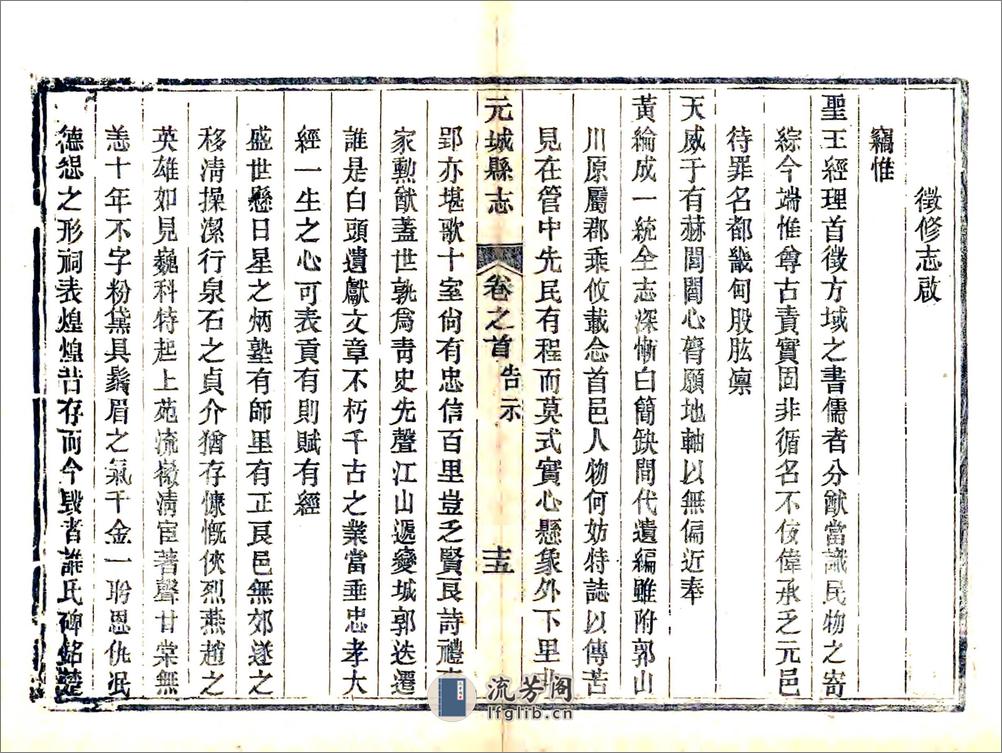 徵修志啟
竊惟
聖王經理首徵方域之書儒者分猷當識民物之寄
綜今端惟尊古責實固非循名不佞偉承乏元邑
待罪名都畿甸股肱凛
天威于有赫閭閻心膂願地軸以無偏近奉
黃綸成一統全志深慚白簡缺間代遺編雖附郭山
川原屬郡乘攸載念首邑人物何妨特誌以傳苦
見在管中先民有程而莫式實心懸象外下里
元城縣志 卷之首 告示 十五
郢亦堪歌十室尙有忠信百里豈乏賢良詩禮
家勲猷蓋世孰爲靑史先聲江山遞變城郭迭遷
誰是白頭遺獻文章不朽千古之業當垂忠孝大
經一生之心可表貢有則賦有經
盛世懸日星之炳塾有師里有正良邑無郊遂之
移淸操潔行泉石之貞介猶存慷慨俠烈燕趙之
英雄如見巍科特起上苑流徽淸宦著聲甘棠無
恙十年不字粉黛具鬚眉之氣千金一聆恩仇泯
德怨之形祠表煌煌昔存而今毀者誰氏碑銘楚
流芳阁
lfglib.cn